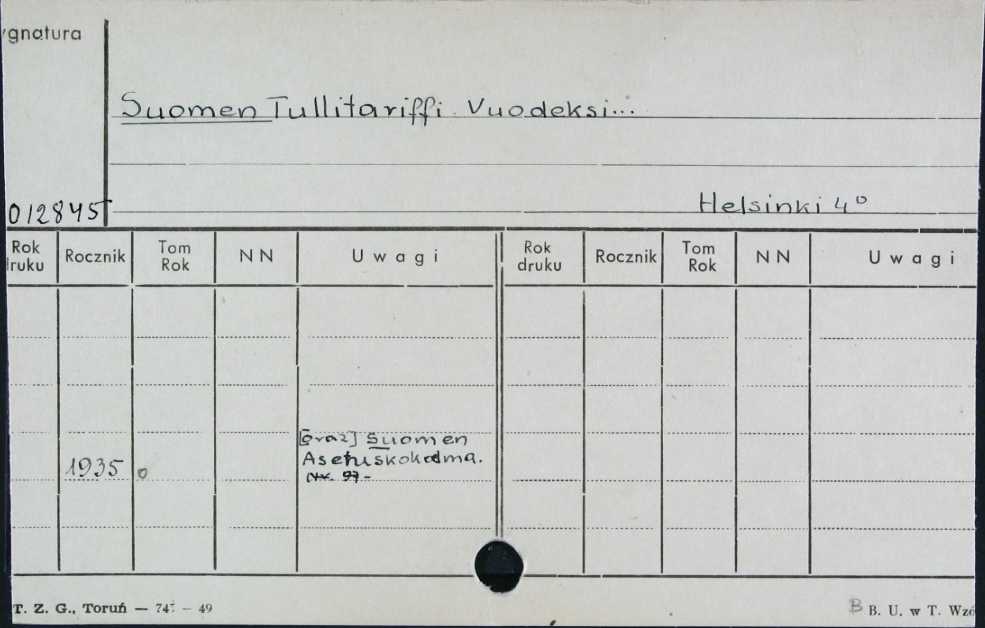 ygnatura
Suomen Tullitariffi Vuodeksi...
Helsinki 4°
012845
Rok druku Rocznik Tom Rok NN Uwagi Rok druku Rocznik Tom Rok NN Uwagi
[oraz] Suomen
1935 o Asetuskokoelma.
Nr. 97-
T. Z. G., Toruń — 747 — 49
B B. U. w T. Wzó